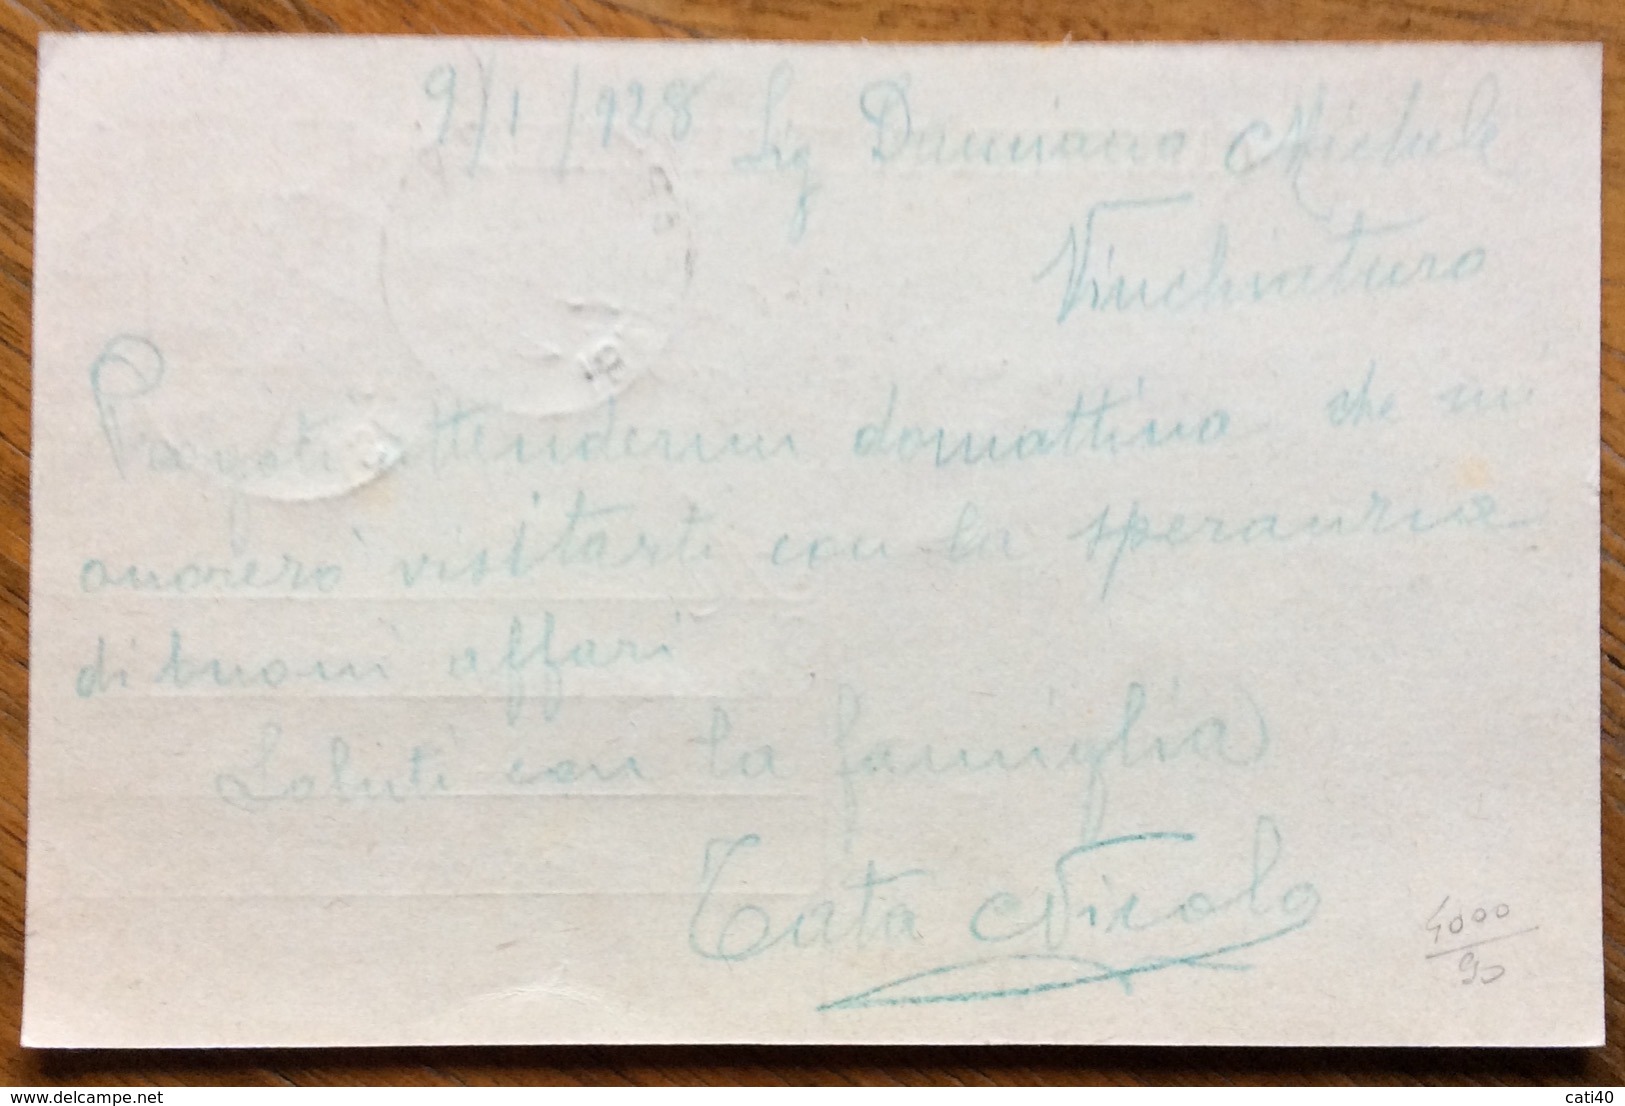 9/1/928 Sig Damiano Michele
Vinchiaturo
Pregoti attendermi domattina che mi
onorerò visitarti con la speranza
di buoni affari
Saluti con la famiglia
Tata Nicola
4000
90
cati40
delcampe.net